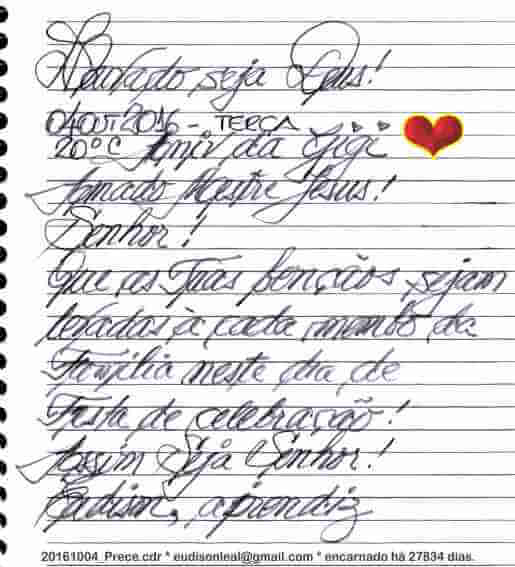 Louvado seja Deus!
04out2016 - TERÇA
20°C Aniv da Gigi
Amado Mestre Jesus!
Senhor!
Que as Tuas bençãos sejam
levadas à cada membo da
Família neste dia de
Festa de celebração!
Assim Seja Senhor!
Eudison, aprendiz
20161004_Prece.cdr * eudisonleal@gmail.com * encarnado há 27834 dias.